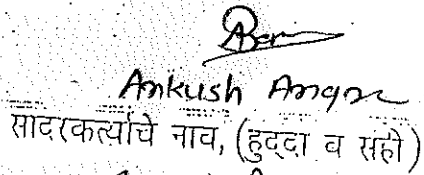 Ankush
सादरकर्त्याचे नाव, (हुद्दा व सही)